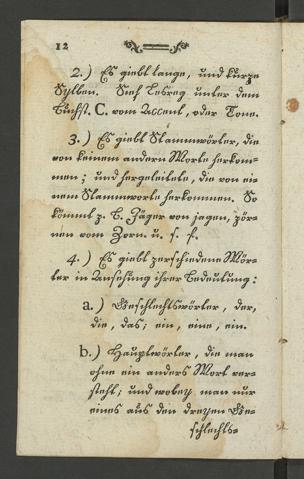 12
2.) Es giebt lange, und kurze
Sylben. Sieh Lesreg unter dem
Buchst. C. vom Accent, oder Tone.
3.) Es giebt Stammwörter, die
von keinem andern Worte herkom-
men; und hergeleitete, die von ei-
nem Stammworte herkommen. So
kömmt z. B. Jäger von jagen, zör-
nen vom Zorn. u. s. f.
4.) Es giebt verschiedene Wör-
ter in Ansehung ihrer Bedeutung:
a.) Geschlechtswörter, der,
die, das; ein, eine, ein.
b.) Hauptwörter, die man
ohne ein anders Wort ver-
steht; und wobey man nur
eines aus den dreyen Ge-
schlechts-